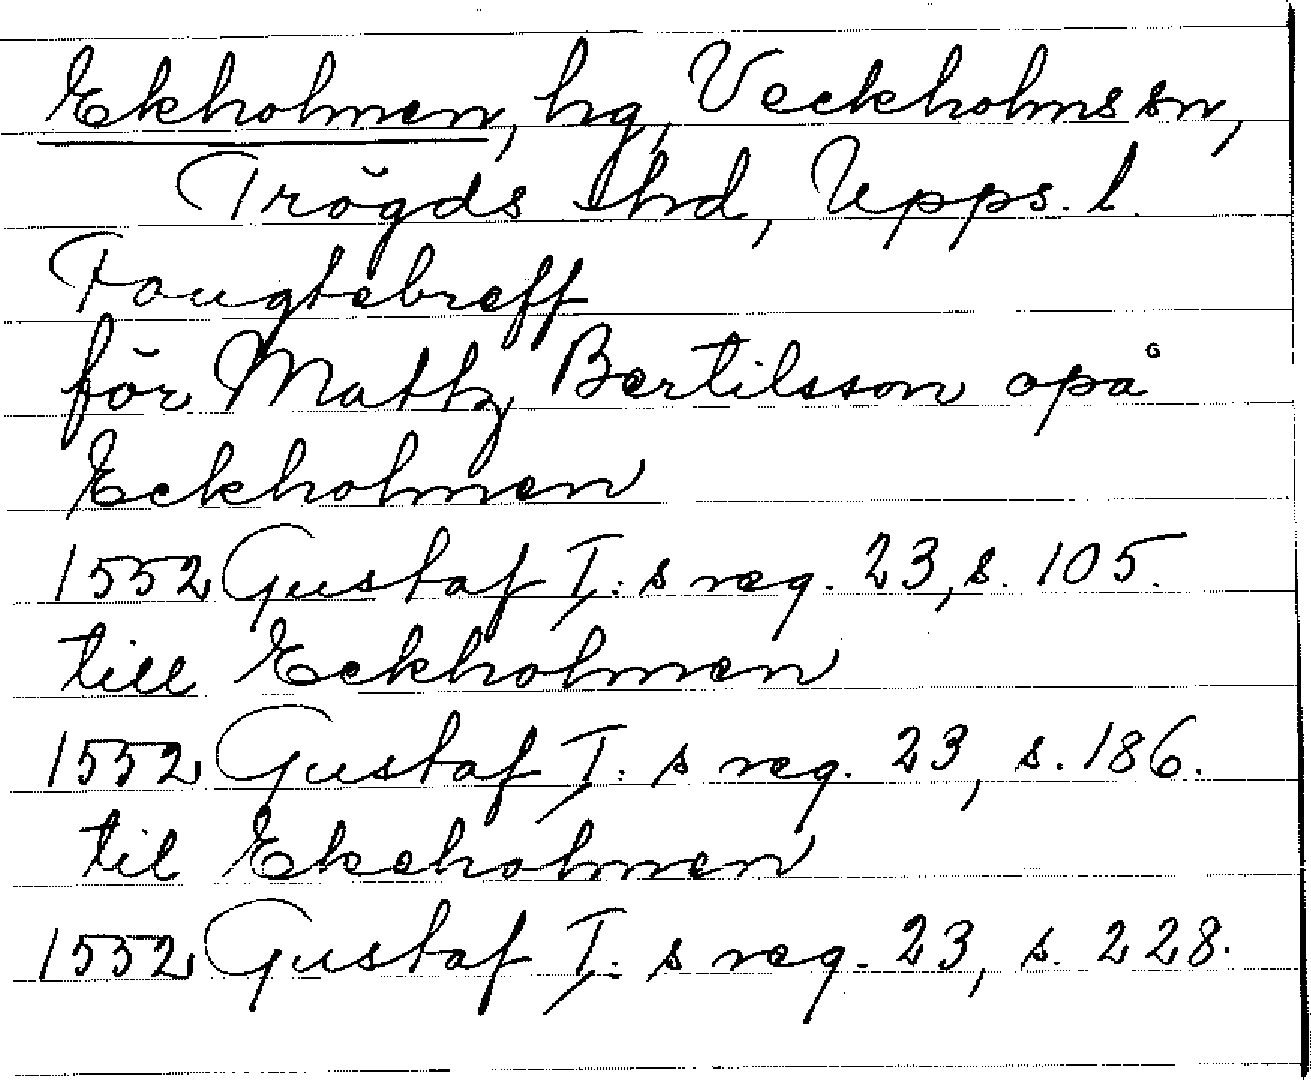 Ekholmen, hg, Veckholms sn,
Trögds hd, Upps. l.
Fougtebreff
för Mattz Bertilsson opå
Eckholmen
1552 Gustaf I: s reg. 23, s. 105.
till Eckholmen
1552 Gustaf I: s reg. 23, s. 186.
til Ekeholmen
1552 Gustaf I: s reg. 23, s. 228.